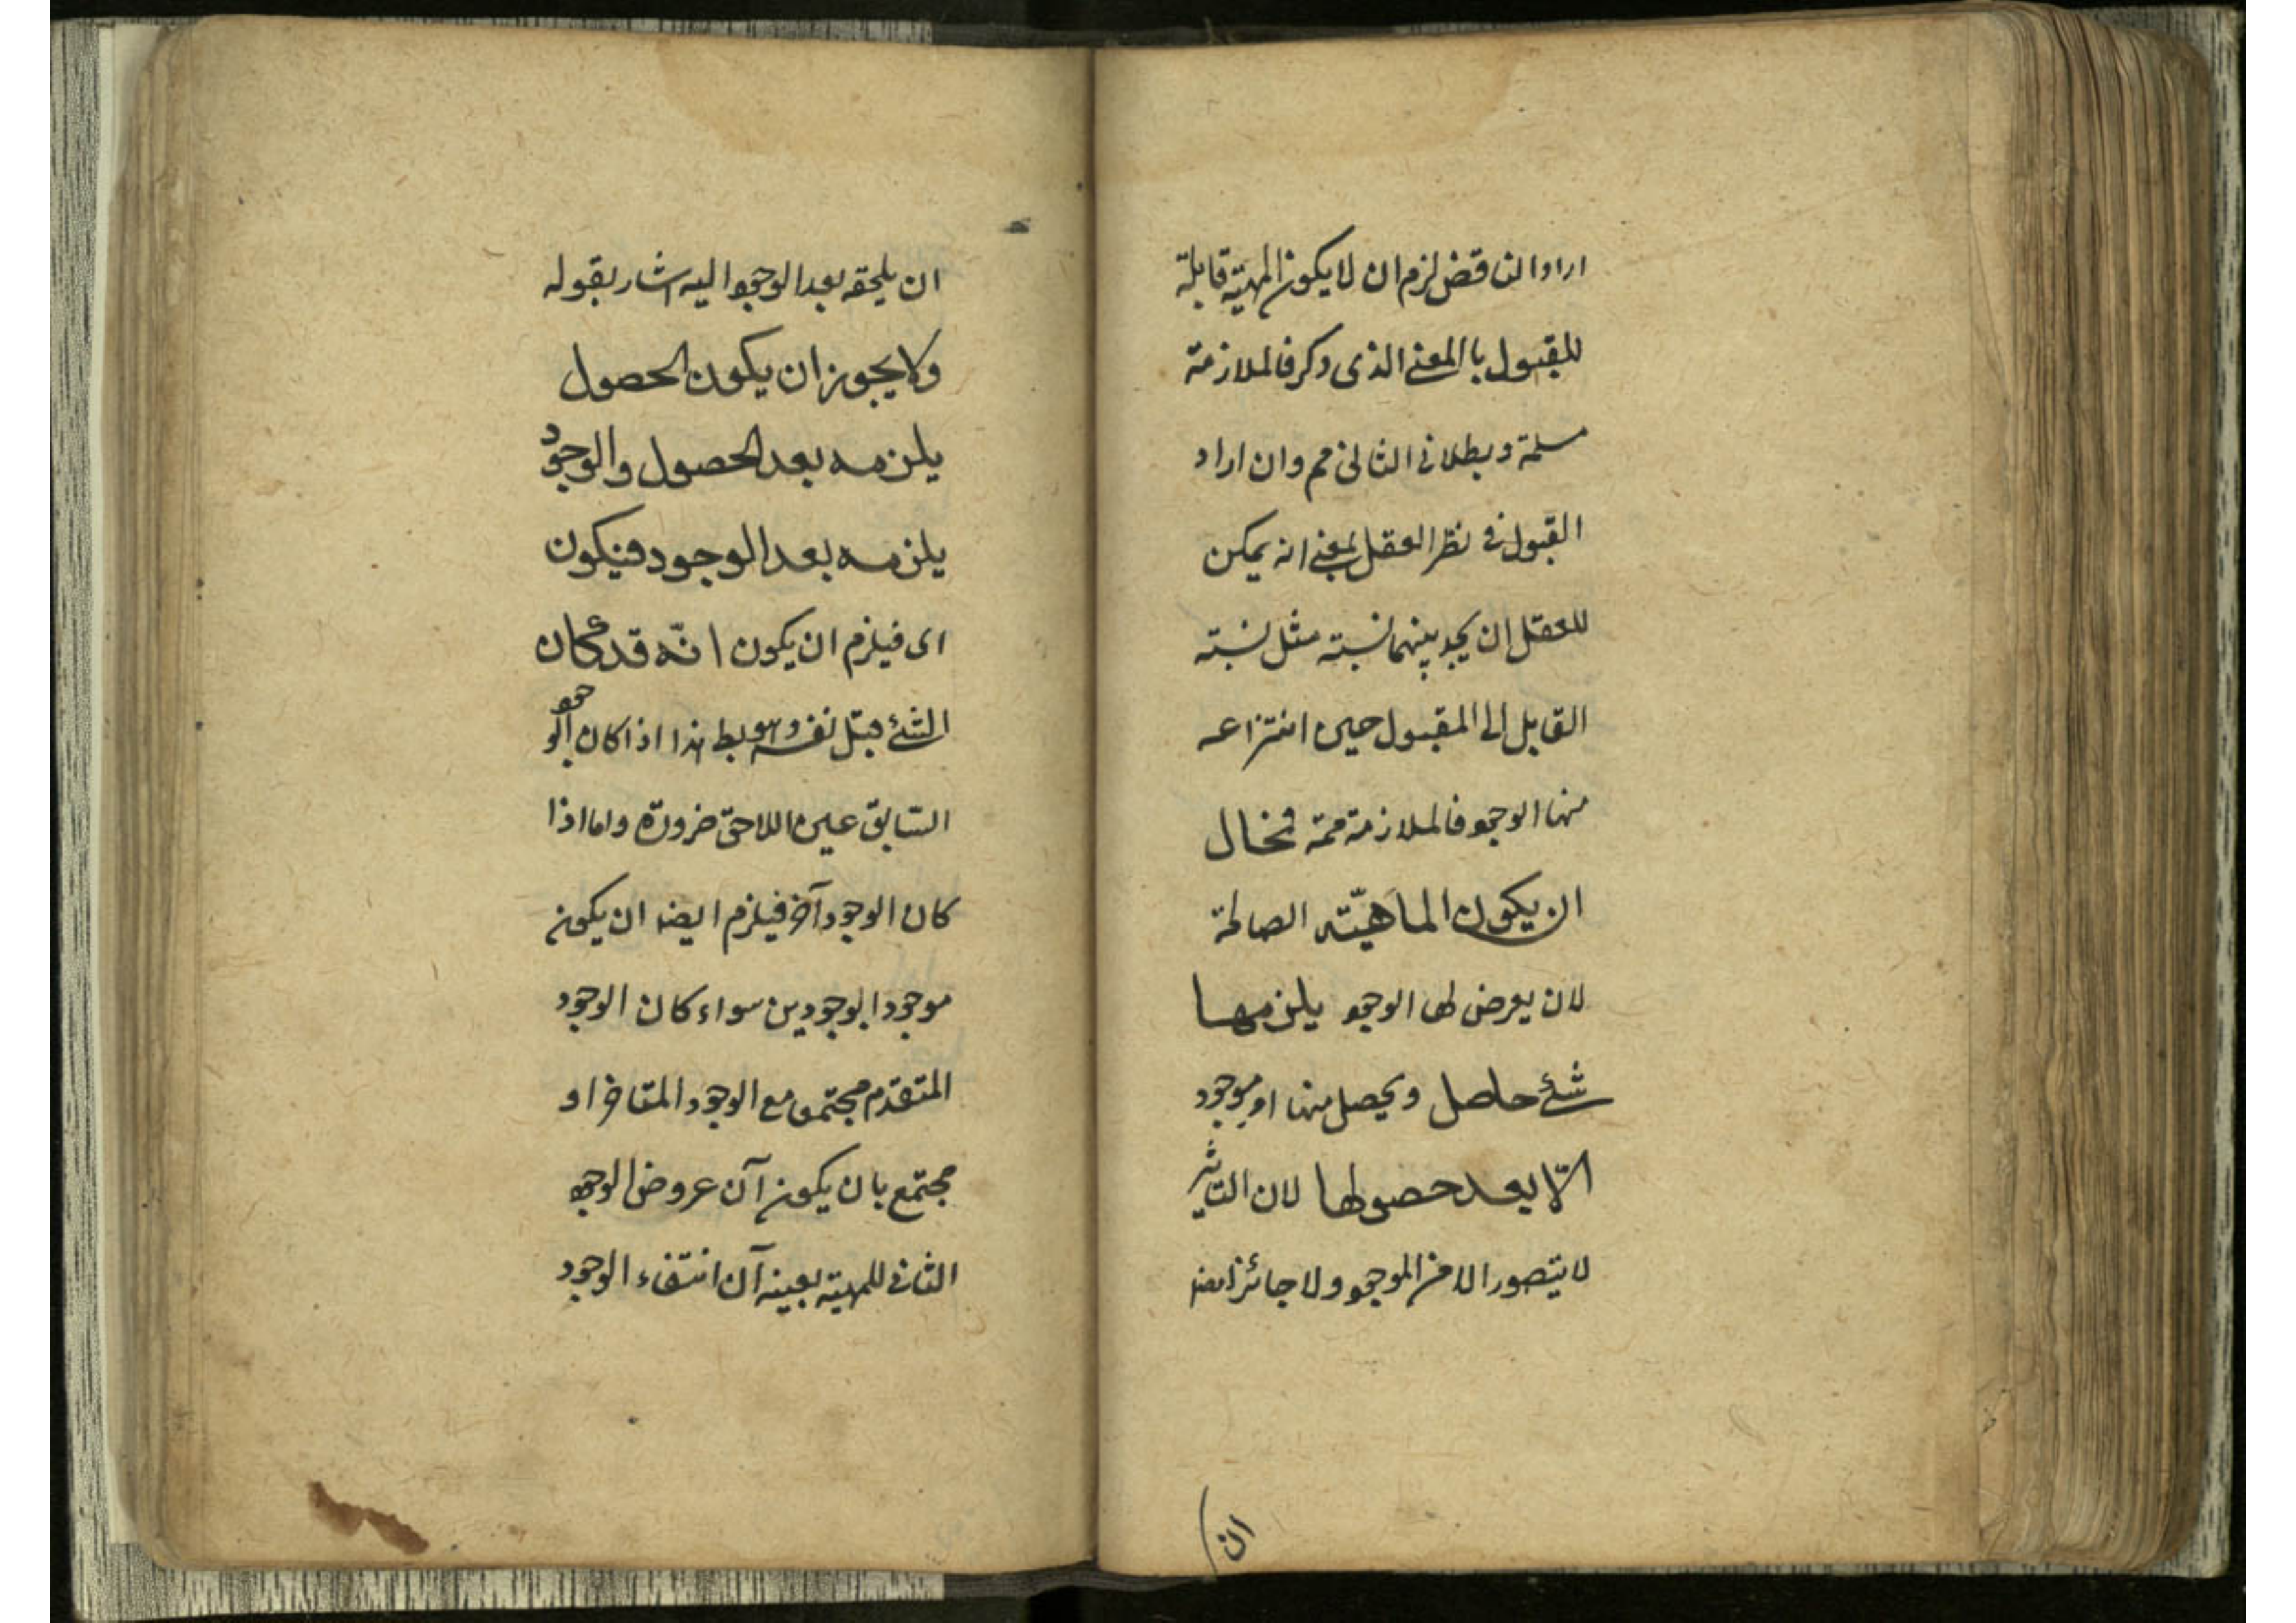 اراد الناقض لزم ان لا يكون المهية قابلة
للمقبول بالمعنى الذى ذكر فالملازمة
مسلمة وبطلان التالى مم وان اراد
القبول فى نظر العقل بمعنى انه يمكن
للعقل ان يجد بينهما نسبته مثل نسبته
القابل الى المقبول حين انتزاعه
منها الوجود فالملازمة ممة فحال
ان يكون الماهيّته الصالحة
لان يعرض لها الوجود يلزمها
شئ حاصل ويحصل منها او موجود
الّا بعد حصولها لان التاثير
لا يتصور الا من الموجود ولا جائز ايضا
ان
ان يلحقه بعد الوجود اليه اشار بقوله
ولا يجوز ان يكون الحصول
يلزمه بعد الحصول والوجود
يلزمه بعد الوجود فيكون
اى فيلزم ان يكون انّه قد كان
الشئ قبل نفسه وهو بط هذا اذا كان الوجود
السّابق عين اللاحق ضرورة واما اذا
كان الوجود آخر فيلزم ايضا ان يكون
موجودا بوجودين سواء كان الوجود
المتقدّم مجتمع مع الوجود المتاخر او
مجتمع بان يكون آن عروض الوجود
الثانى للمهية بعينه آن انتفاء الوجود